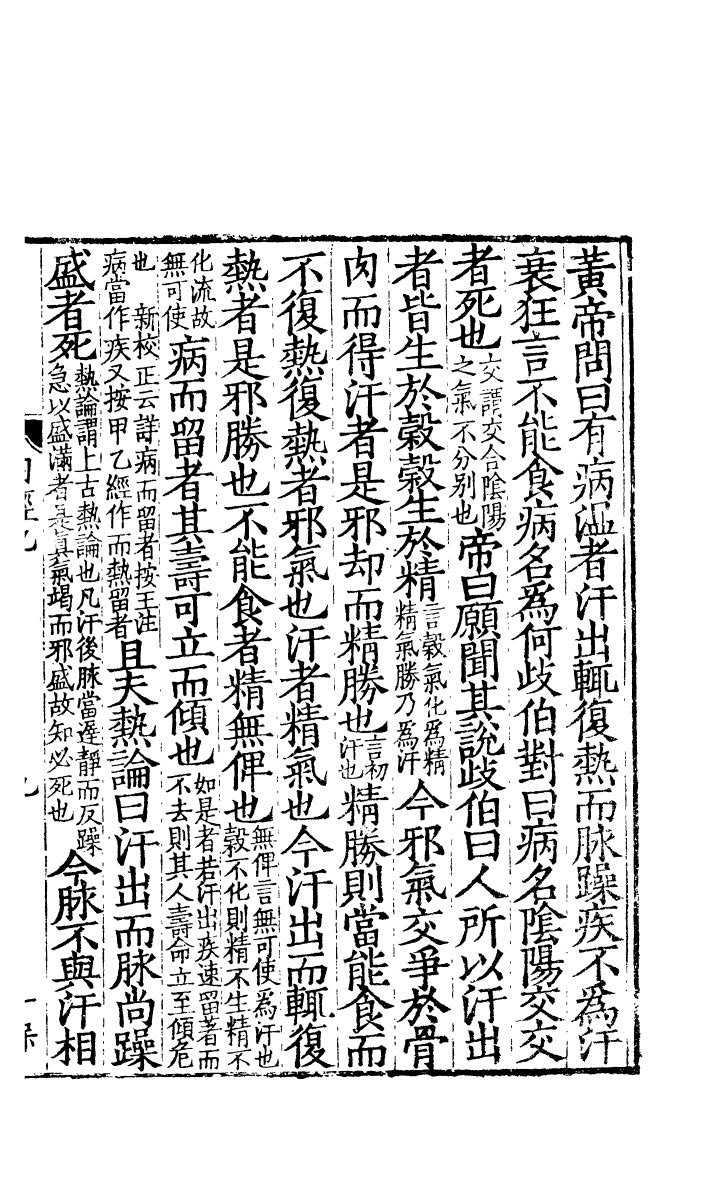 黃帝問曰有病溫者汗出輒復熱而脉躁疾不爲汗
衰狂言不能食病名爲何歧伯對曰病名陰陽交交
者死也交謂交合陰陽之氣不分別也帝曰願聞其說歧伯曰人所以汗出
者皆生於穀穀生於精言穀氣化爲精精氣勝乃爲汗今邪氣交爭於骨
肉而得汗者是邪却而精勝也言初汗也精勝則當能食而
不復熱復熱者邪氣也汗者精氣也今汗出而輒復
熱者是邪勝也不能食者精無俾也無俾言無可使爲汗也穀不化則精不生精不
化流故無可使病而留者其壽可立而傾也如是者若汗出疾速留著而不去則其人壽命立至傾危
也 新校正云詳病而留者按王注病當作疾又按甲乙經作而熱留者且夫熱論曰汗出而脉尚躁
盛者死熱論謂上古熱論也凡汗後脉當遲靜而反躁急以盛滿者是真氣竭而邪盛故知必死也今脉不與汗相